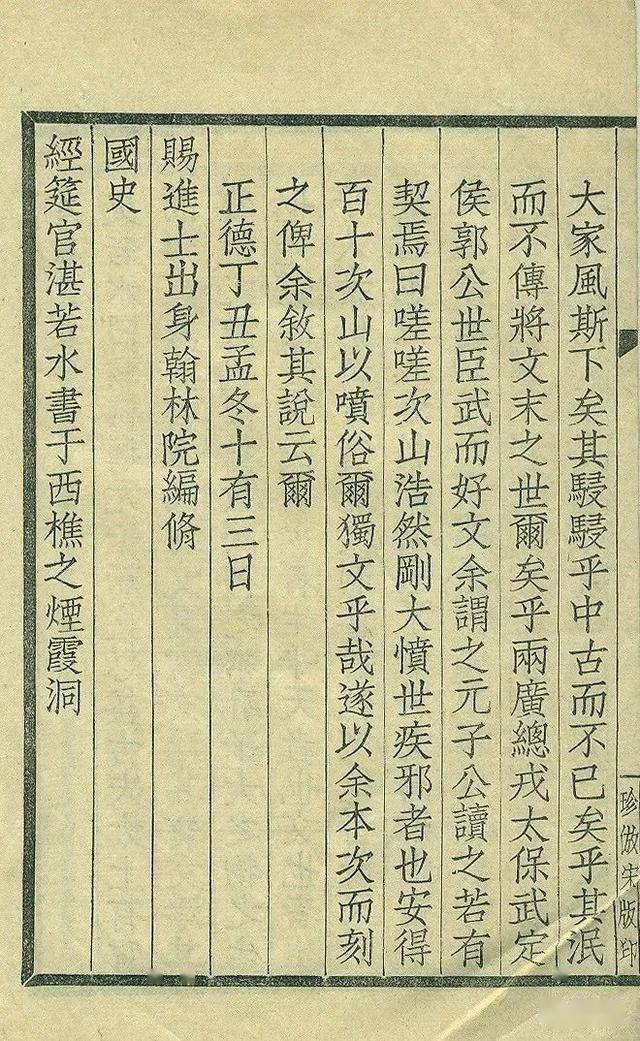 珍倣宋版印
大家風斯下矣其駸駸乎中古而不已矣乎其泯
而不傳將文末之世爾矣乎兩廣總戎太保武定
侯郭公世臣武而好文余謂之元子公讀之若有
契焉曰嗟嗟次山浩然剛大憤世疾邪者也安得
百十次山以噴俗爾獨文乎哉遂以余本次而刻
之俾余敘其說云爾
正德丁丑孟冬十有三日
賜進士出身翰林院編脩
國史
經筵官湛若水書于西樵之煙霞洞